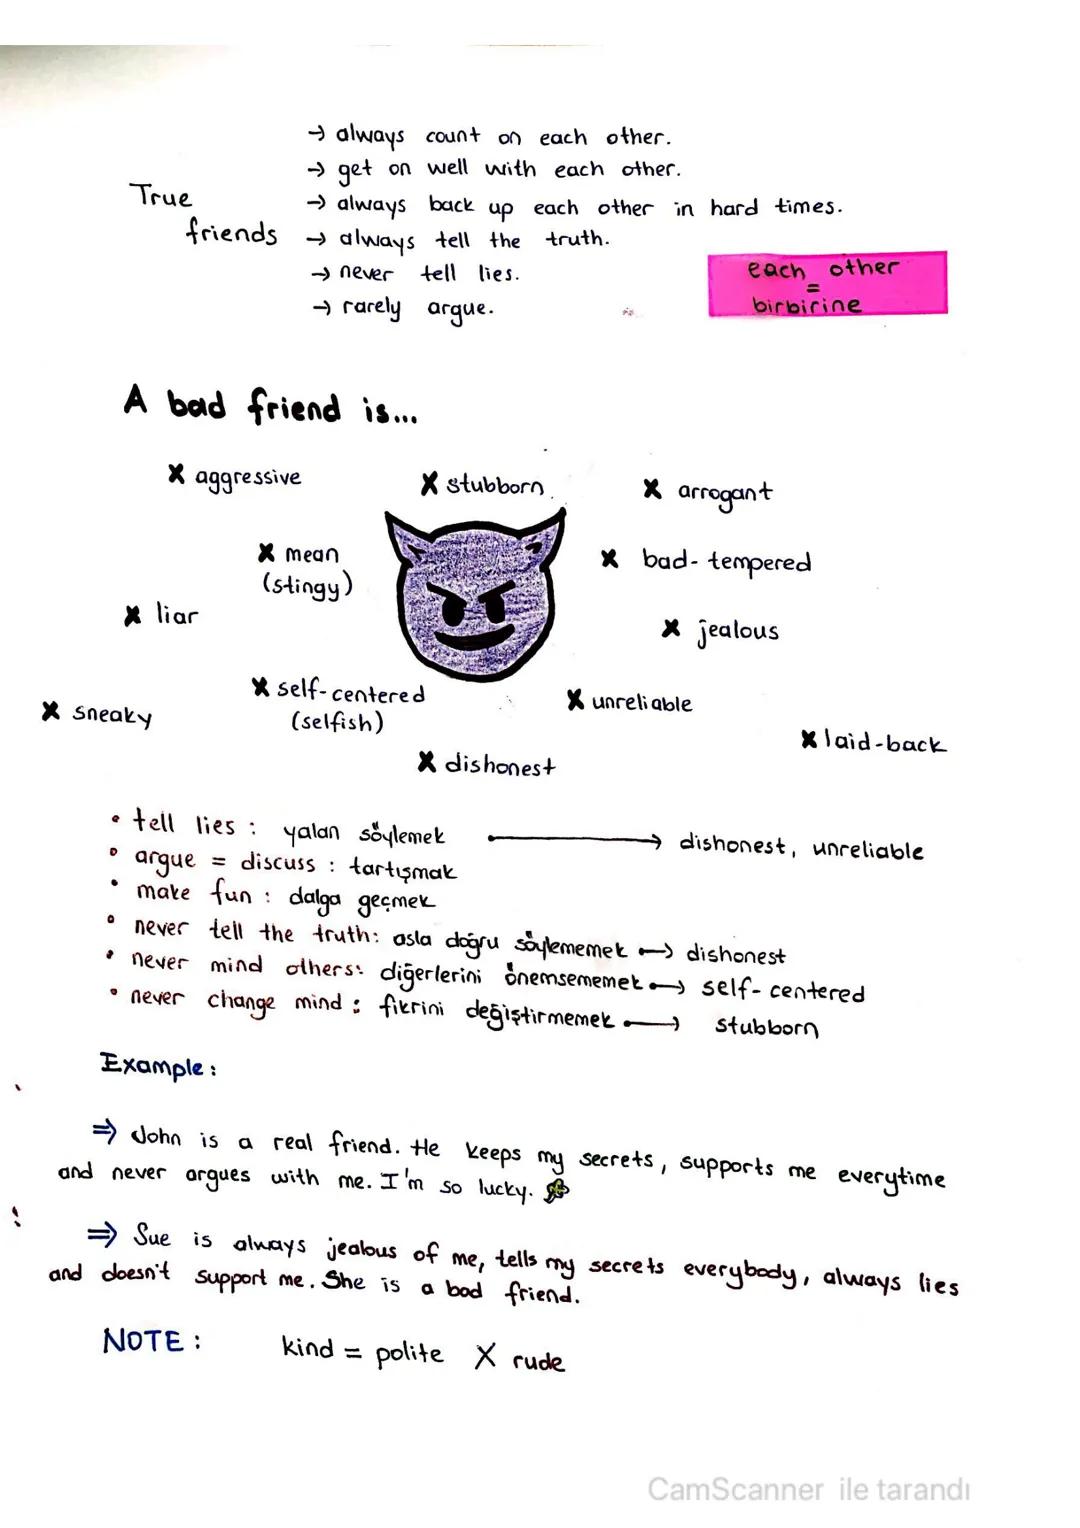 → always count on each other.
→ get on well with each other.
True friends
→ always back up each other in hard times.
→ always tell the truth.
→ never tell lies.
→ rarely argue.
each other
=
birbirine
A bad friend is...
X aggressive
X stubborn
X arrogant
X mean
(stingy)
X bad-tempered
X liar
X jealous
X self-centered
(selfish)
X unreliable
X sneaky
X laid-back
X dishonest
• tell lies : yalan söylemek → dishonest, unreliable
• argue = discuss : tartışmak
• make fun : dalga geçmek
• never tell the truth: asla doğru söylememek → dishonest
• never mind others: diğerlerini önemsememek → self-centered
• never change mind : fikrini değiştirmemek → stubborn
Example :
⇒ John is a real friend. He keeps my secrets, supports me everytime
and never argues with me. I'm so lucky.
⇒ Sue is always jealous of me, tells my secrets everybody, always lies
and doesn't support me. She is a bad friend.
NOTE : kind = polite X rude
CamScanner ile tarandı